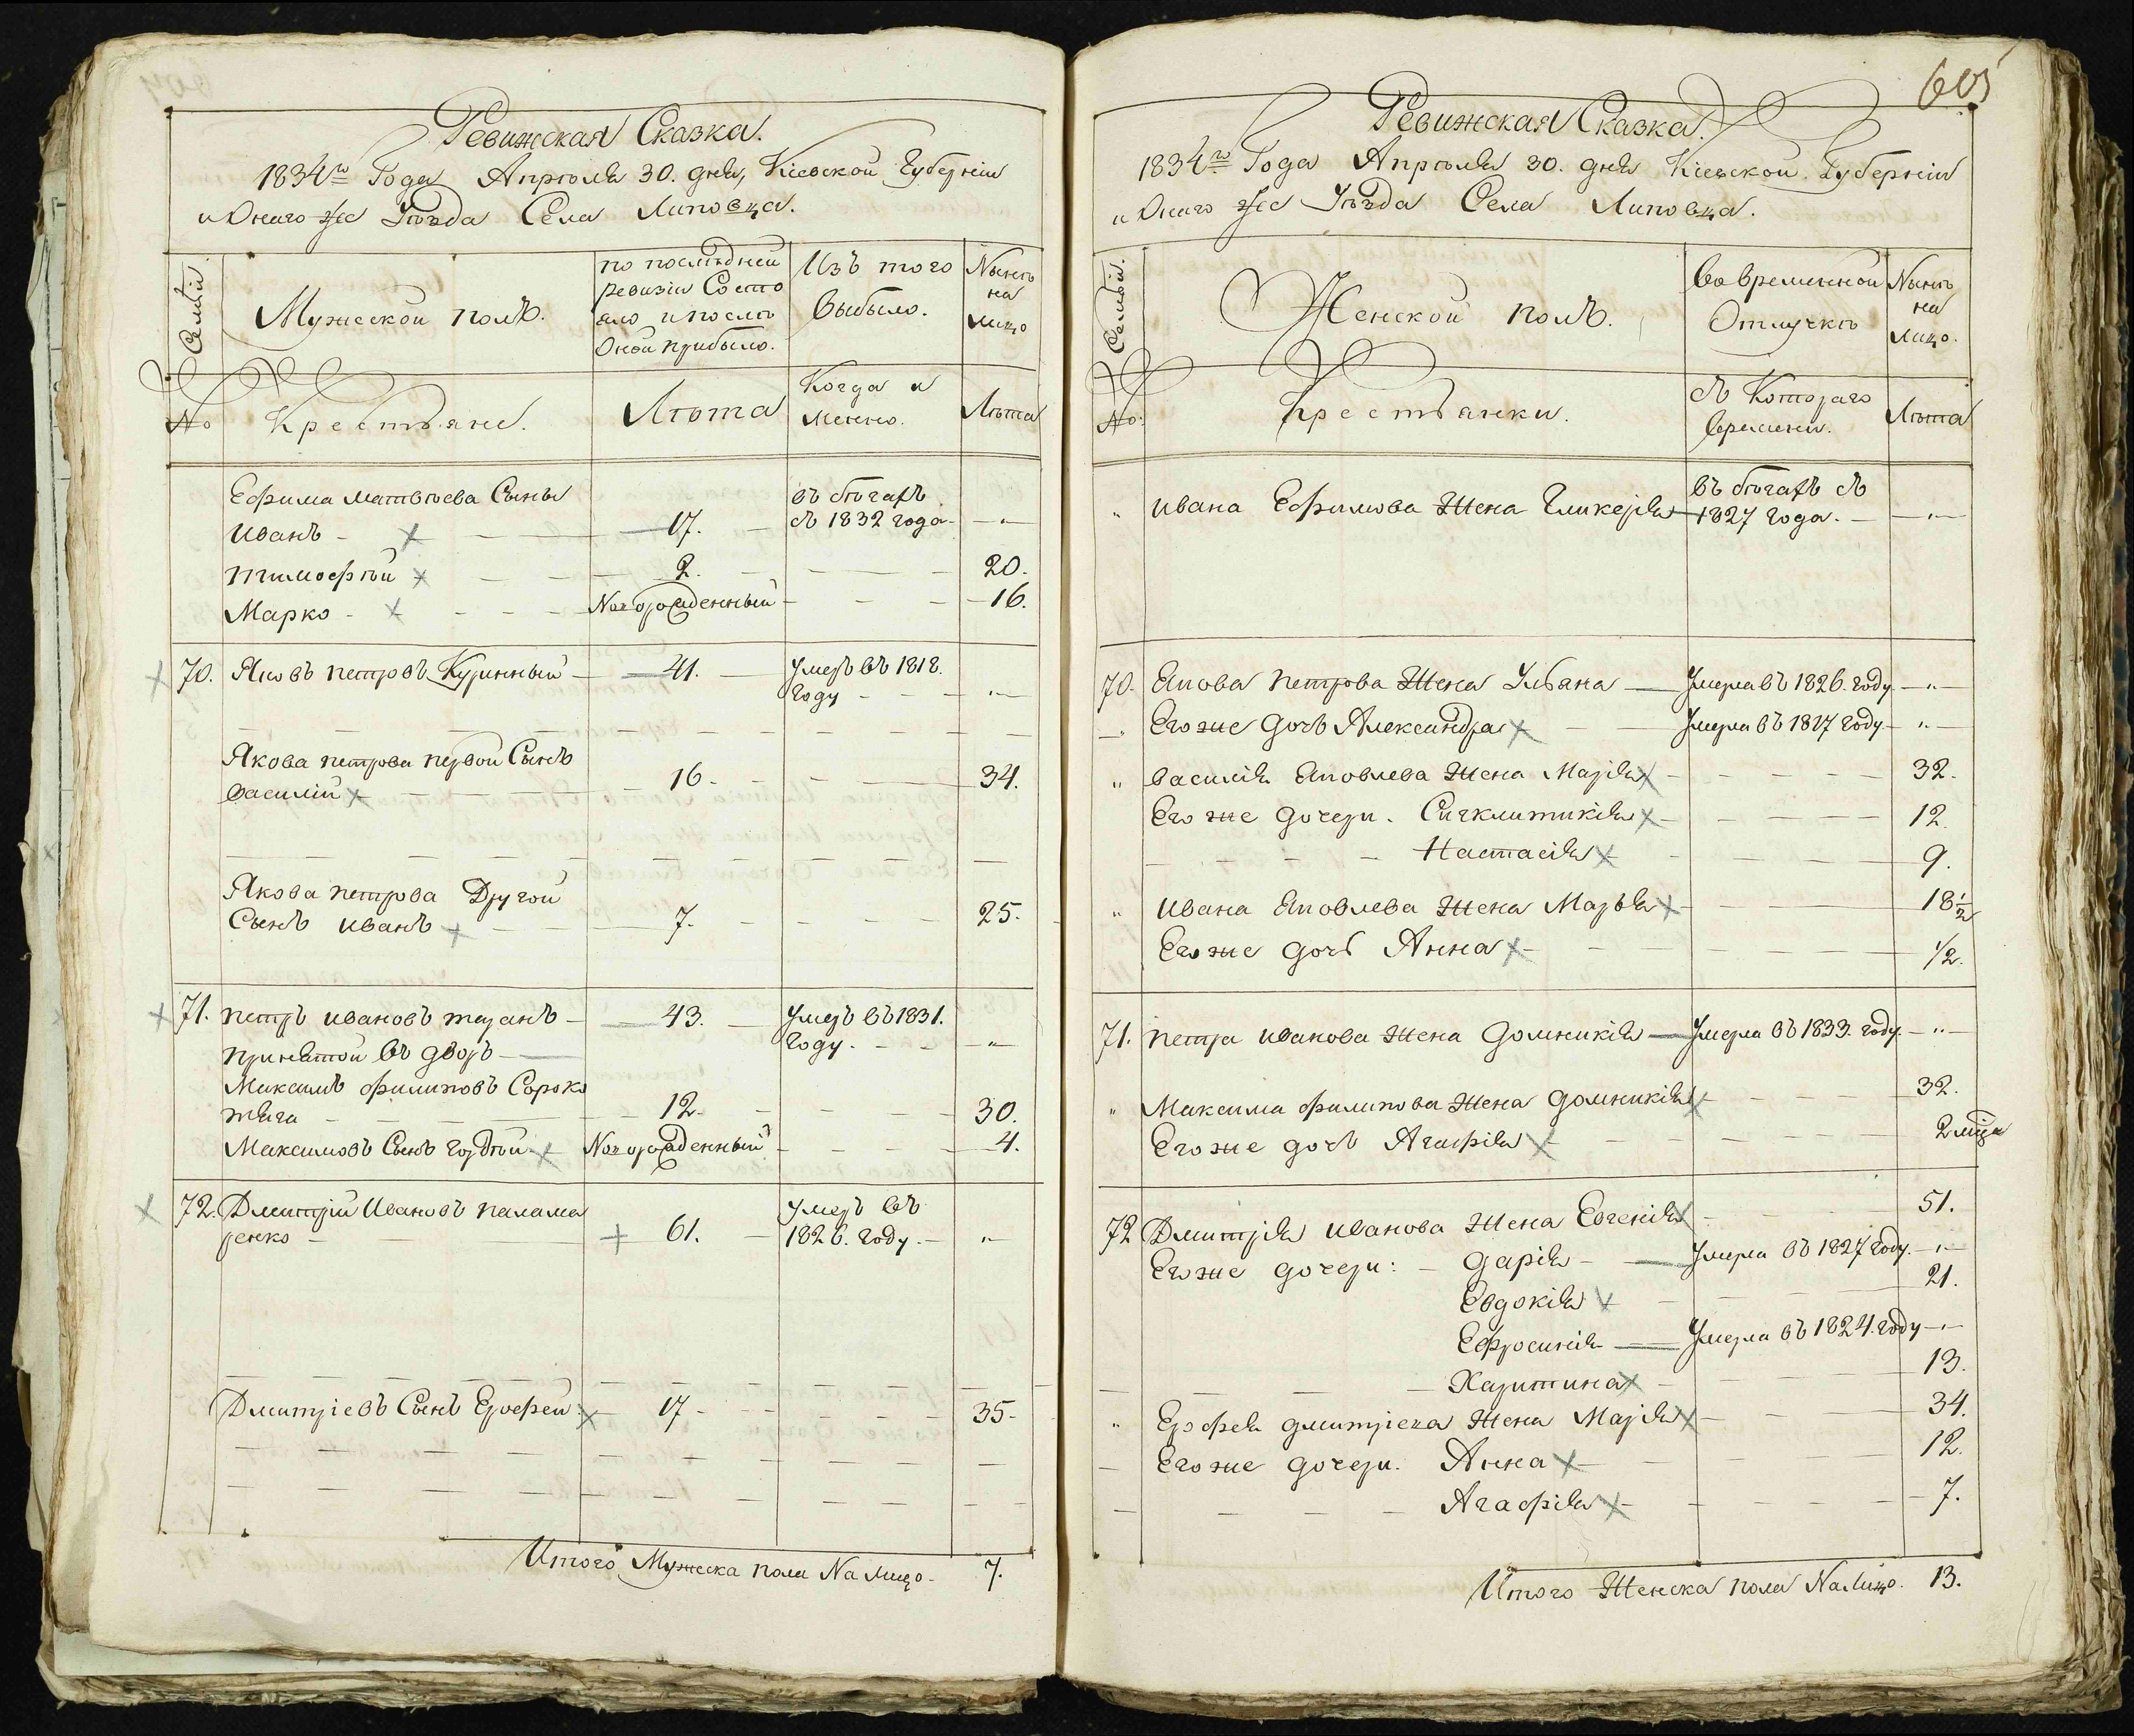 Ревижская Сказка.
1834го Года Апрѣля 30. дня, Кіевской Губерніи
и Онаго же Уѣзда Села Липовца.
Семьи
Мужеской полъ.
по послѣдней
ревизіи Состо
яло и послѣ
Оной прибыло.
Изъ того
Выбыло.
Нынѣ
на
лицо
№
Крестьяне.
Лѣта
Когда и
менно.
Лѣта
Ефима Матвѣева Сыны
Иванъ - 17. въ бѣгахъ
съ 1832 года - "
Тимофѣй 2. 20.
Марко - Новорожденный 16.
70. Яковъ Петровъ Куринный 41. Умеръ въ 1818.
Году - "
Якова Петрова первой Сынъ
Василій 16 - 34.
Якова Петрова Другой
Сынъ Иванъ 7. 25.
71. Петръ Ивановъ 43. Умеръ въ 1831.
принятой въ дворъ Году. "
Максимъ Филиповъ Сороко
тяга 12. 30.
Максимовъ Сынъ Гордѣй Новорожденный 4.
72. Дмитрій Ивановъ Палама
ренко 61. Умеръ въ
1826. Году. "
Дмитріевъ Сынъ Ерофей 17 - 35 -
Итого Мужеска пола На лицо - 7.
605
Ревижская Сказка.
1834го Года Апрѣля 30. дня Кіевской Губерніи
и Онаго же Уѣзда Села Липовца.
Семьи.
Женской полъ.
Во временной
Отлучкѣ
Нынѣ
на
лицо.
№.
Крестьянки.
съ Котораго
времени.
Лѣта
" Ивана Ефимова Жена Гликерія въ бѣгахъ съ
1827 Года. - "
70. Якова Петрова Жена Ульяна Умерла въ 1826. году "
" Его же дочь Александра Умерла въ 1817 году "
" Василія Яковлева Жена Марія 32.
Его же дочери. Синклитикія 12.
Настасія 9.
" Ивана Яковлева Жена Марья 18 1/2
Его же дочь Анна 1/2.
71. Петра Иванова Жена Домникія Умерла въ 1833. году. "
" Максима Филипова Жена Домникія 32.
Его же дочь Агафія 2 мца
72 Дмитрія Иванова Жена Евгенія 51.
Его же дочери: - Дарія - Умерла въ 1827 году. "
Евдокія 21.
Ефросинія Умерла въ 1824. году "
Харитина 13.
" Ерофея Дмитріева Жена Марія 34.
Его же дочери. Анна 12.
Агафія 7.
Итого Женска пола На Лицо. 13.